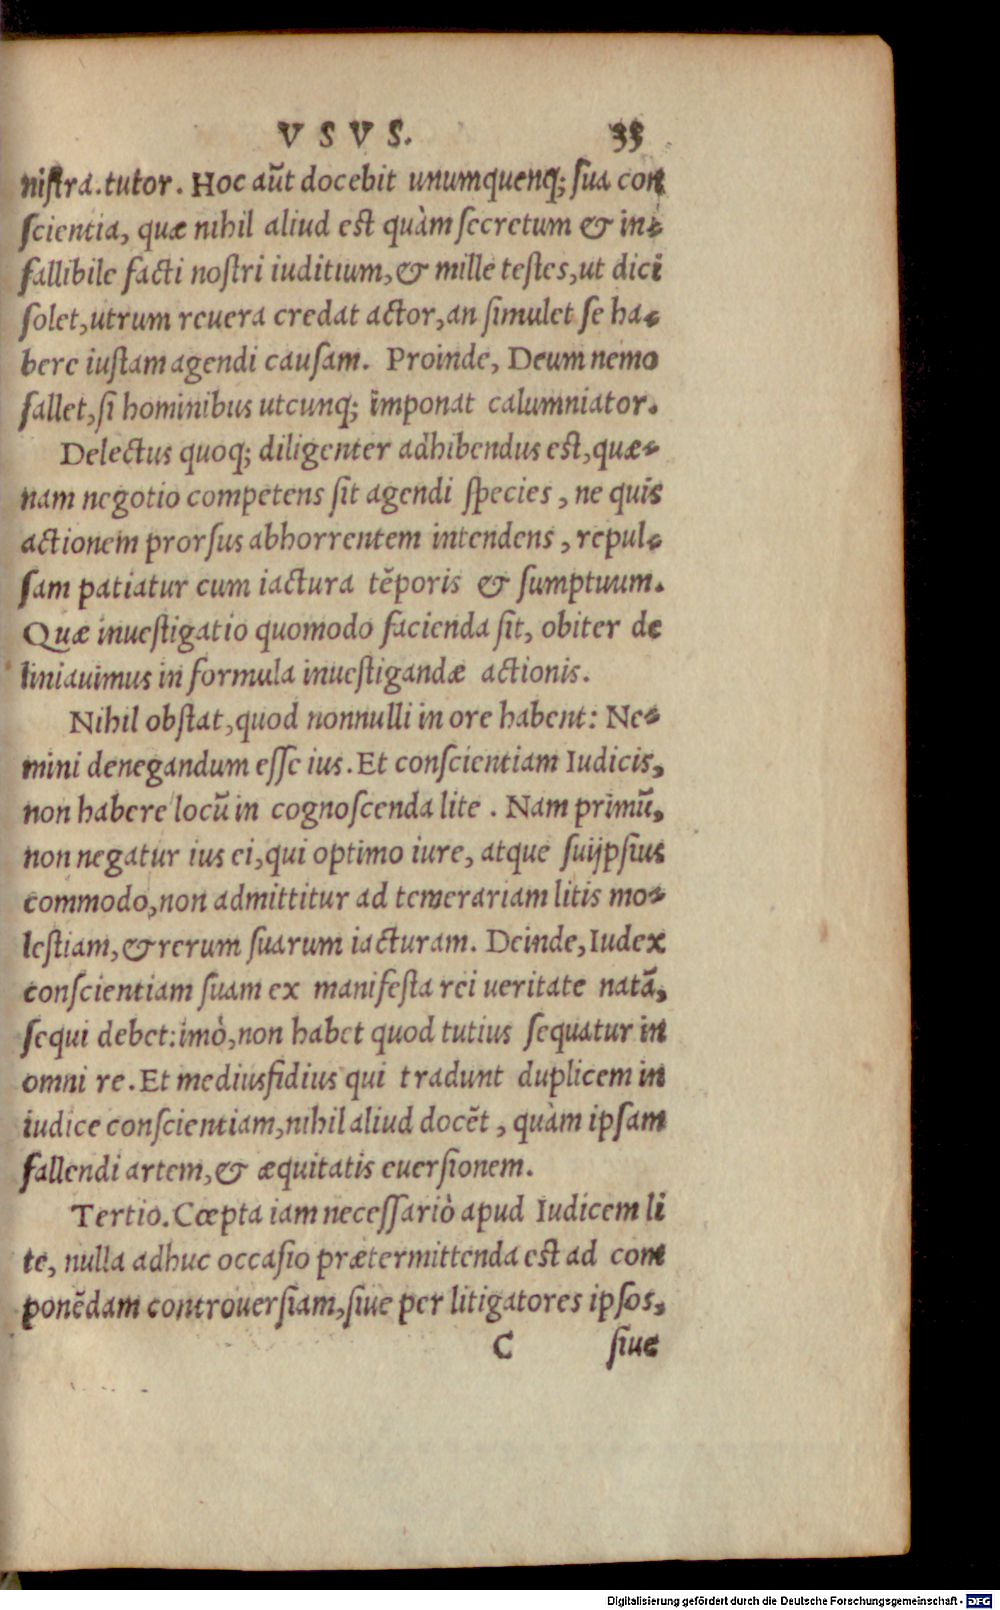 VSVS. 33
nistra. tutor. Hoc aūt docebit unumquenq; sua con
scientia, quæ nihil aliud est quàm secretum & in-
fallibile facti nostri iuditium, & mille testes, ut dici
solet, utrum reuera credat actor, an simulet se ha-
bere iustam agendi causam. Proinde, Deum nemo
fallet, si hominibus utcunq; imponat calumniator.
Delectus quoq; diligenter adhibendus est, quæ-
nam negotio competens sit agendi species, ne quis
actionem prorsus abhorrentem intendens, repul-
sam patiatur cum iactura tēporis & sumptuum.
Quæ inuestigatio quomodo facienda sit, obiter de
liniauimus in formula inuestigandæ actionis.
Nihil obstat, quod nonnulli in ore habent: Ne-
mini denegandum esse ius. Et conscientiam Iudicis,
non habere locū in cognoscenda lite. Nam primū,
non negatur ius ei, qui optimo iure, atque suijpsius
commodo, non admittitur ad temerariam litis mo-
lestiam, & rerum suarum iacturam. Deinde, Iudex
conscientiam suam ex manifesta rei ueritate natā,
sequi debet: imò, non habet quod tutius sequatur in
omni re. Et mediusfidius qui tradunt duplicem in
iudice conscientiam, nihil aliud docēt, quàm ipsam
fallendi artem, & æquitatis euersionem.
Tertio. Cœpta iam necessariò apud Iudicem li
te, nulla adhuc occasio prætermittenda est ad com
ponēdam controuersiam, siue per litigatores ipsos,
C siue
Digitalisierung gefördert durch die Deutsche Forschungsgemeinschaft - DFG